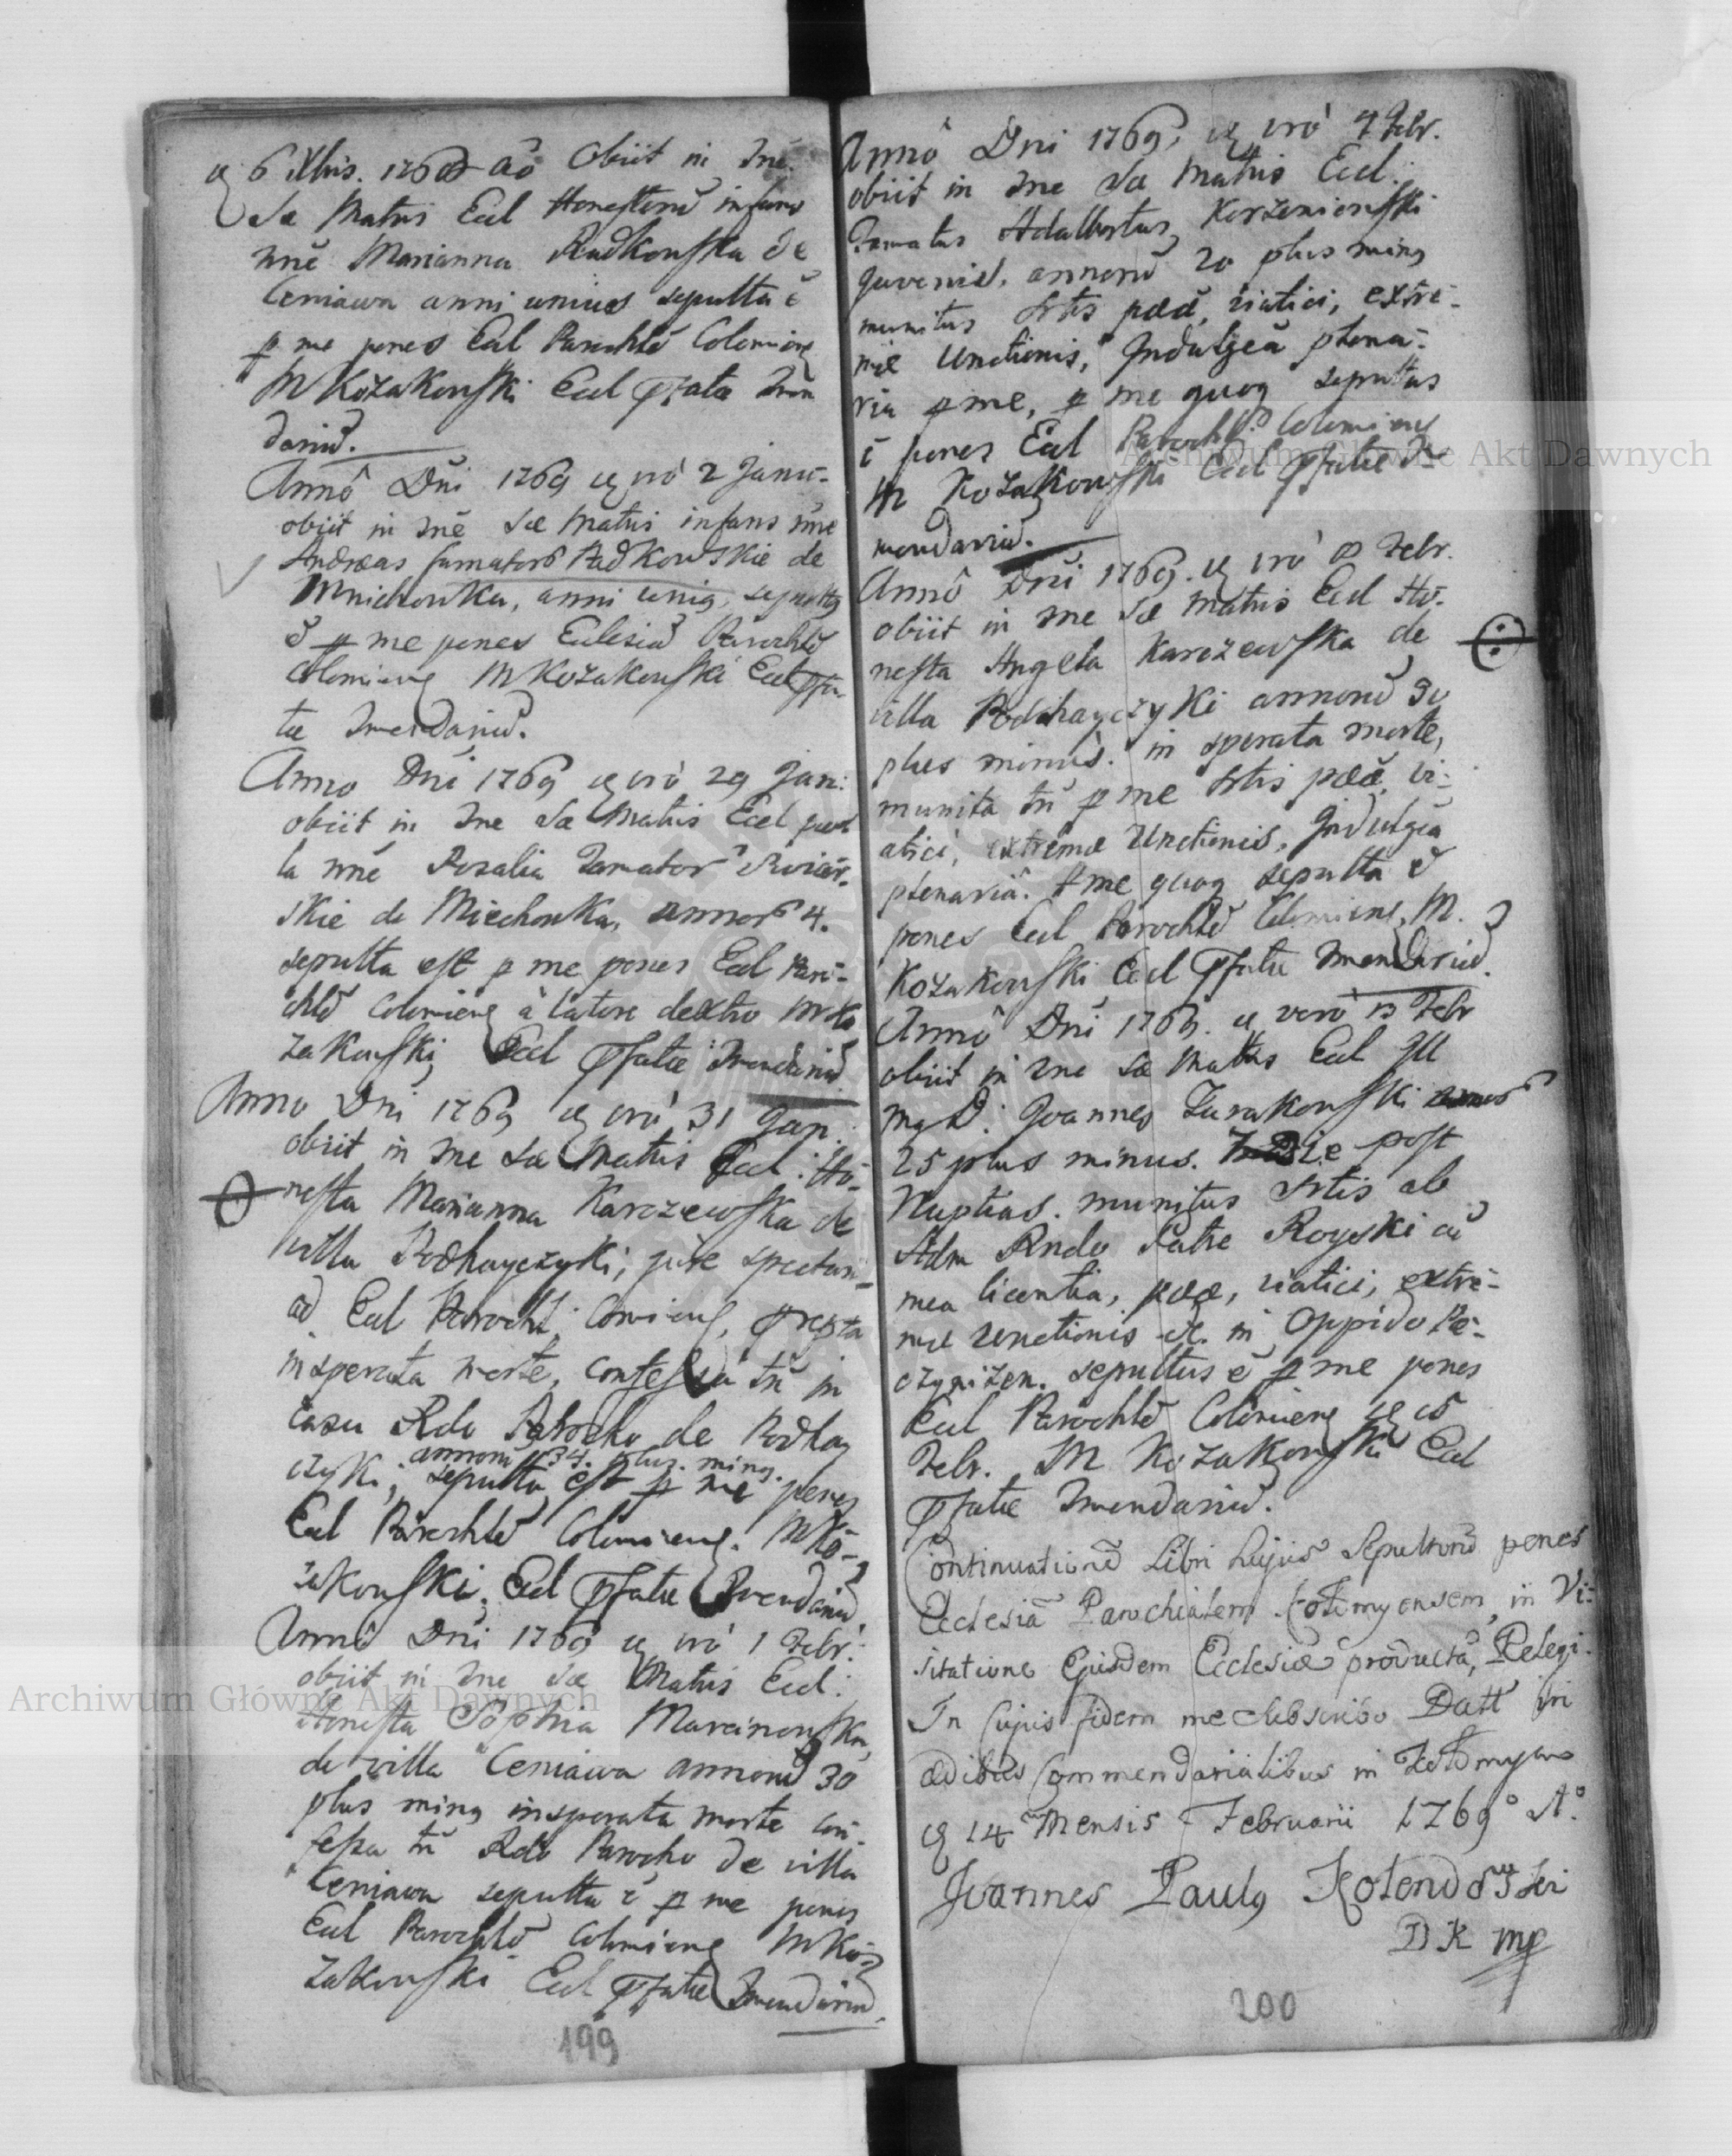 6 Xbris. 1768 aô Obiit in Dnê.
Sæ Matris Eccl Honestorũ infans
nnê Marianna Rudkowska de
Ceniawa anni unius sepulta ê
p me penes Eccl Parochlê Colomiens
M Kozakowski Eccl Pfatæ Cmen
darius.
Annô Dñi 1769 vrò 2 Janu-
obiit in Dnê Sæ Matris infans nne
Andreas famatorũ Radkowskie de
Mnichowka, anni unius, sepultus
ê p me penes Eclesiã Parochlê
Colomiens M Kozakowski Eccl Pfa-
tæ Cmendarius.
Anno Dñi 1769 vrò 29 Jan:
obiit in Dne Sæ Matris Eccl puel
la nnê Rosalia famator
skie de Miechowka, annor 4.
sepulta est p me penes Eccl Paro-
chlê Colomiens â latere dextro M Ko
zakowski Eccl Pfatæ Cmendarius
Anno Dñi 1769 vrò 31 Jan
obiit in Dne Sæ Matris Eccl: Ho-
nesta Marianna Karczewska de
villa Podhayczyki, jure spectan-
ad Eccl Parochl:
insperata morte, confessa tñ in
casu Rdo Parocho de Podhay
annorũ 34. plus. minus.
czyki, sepulta est p me penes
Eccl Parochlê Colomiens. M Ko-
zakowski. Eccl Pfatæ Cmendarius
Annô Dñi 1769 vrò 1 Febr:
obiit in Dne Sæ Matris Eccl:
Honesta Sophia Marcinowska,
de villa Ceniawa annorũ 30
plus minus insperata morte con-
fessa tñ Rdo Parocho de villa
Ceniawa sepulta ê p me penes
Eccl Parochlê Colomiens M Ko-
zakowski Eccl Pfatæ Cmendarius.
199
Annô Dni 1769, vrò 4 Febr.
obiit in Dne Sæ Matris Eccl:
Famatus Adalbertus Korzeniowski
Juvenis, annorũ 20 plus minus
munitus Sctis pææ, viatici, extre-
mæ Unctionis, Indulgeã plena-
ria p me, p me quoq sepultus
ê penes Eccl Parochlê Colomiens
M Kozakowski Eccl Pfatæ C
mendarius.
Annô Dñi 1769. vrò 8 Febr.
obiit in Dne Sæ Matris Eccl Ho-
nesta Angela Karczewska de
villa Podhayczyki annorũ 30
plus minus. insperata morte,
munita tñ p me Sctis pææ, vi-
atici, extremæ Unctionis, Indulgeã
plenariâ. p me quoq sepulta ê
penes Eccl Parochlê Colomiens, M.
Kozakowski Eccl Pfatæ Cmendarius.
Annô Dñi 1769. verò 13 Febr
obiit in Dne Sæ Matris Eccl Ill
mg D: Joannes Zurakowski
25 plus minus. post
Nuptias. munitus Sctis ab
Adm Rndo Patre Royski cũ
mea licentia, pææ, viatici, extre-
mæ Unctionis in Oppido Pe-
czynizen. sepultus ê p me penes
Eccl Parochlê Colomiens 15
Febr. M Kozakowski Eccl
Pfatæ Cmendarius.
Continuationẽ Libri hujus Sepultorũ penes
Ecclesiã Parochialem Kołomyensem in Vi-
sitatione Ejusdem Ecclesiæ productã, Relegi.
In Cujus fidem me Subscribo Datt in
ædibus Commendarialibus in Kołomyens
14 Mensis Februarii 1769° A°
Joannes Paulus
D K mp
200
Archiwum Główne Akt Dawnych
Archiwum Główne Akt Dawnych